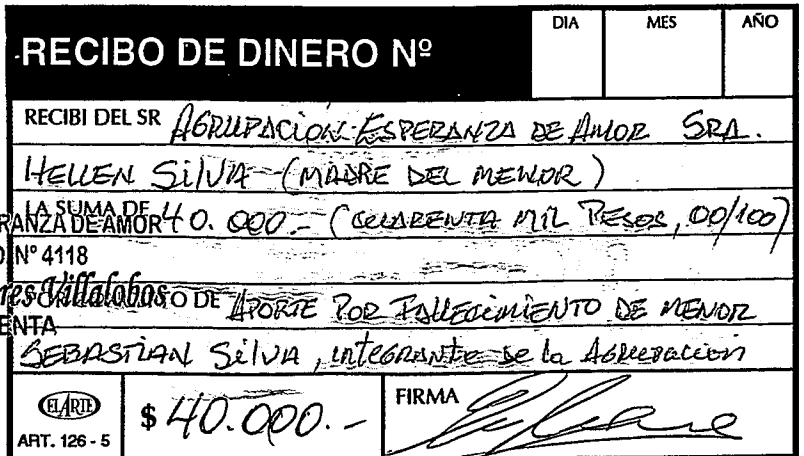 RECIBO DE DINERO Nº
DIA MES AÑO
RECIBI DEL SR AGRUPACION ESPERANZA DE AMOR SRA.
HELLEN SILVA (MADRE DEL MENOR)
LA SUMA DE 40.000.- (CUARENTA MIL PESOS, 00/100)
RANZA DE AMOR
Nº 4118
res Villalobos
DE APORTE POR FALLECIMIENTO DE MENOR
ENTA
SEBASTIAN SILVA, INTEGRANTE DE LA AGRUPACION
EL ARTE
ART. 126 - 5
$ 40.000.-
FIRMA